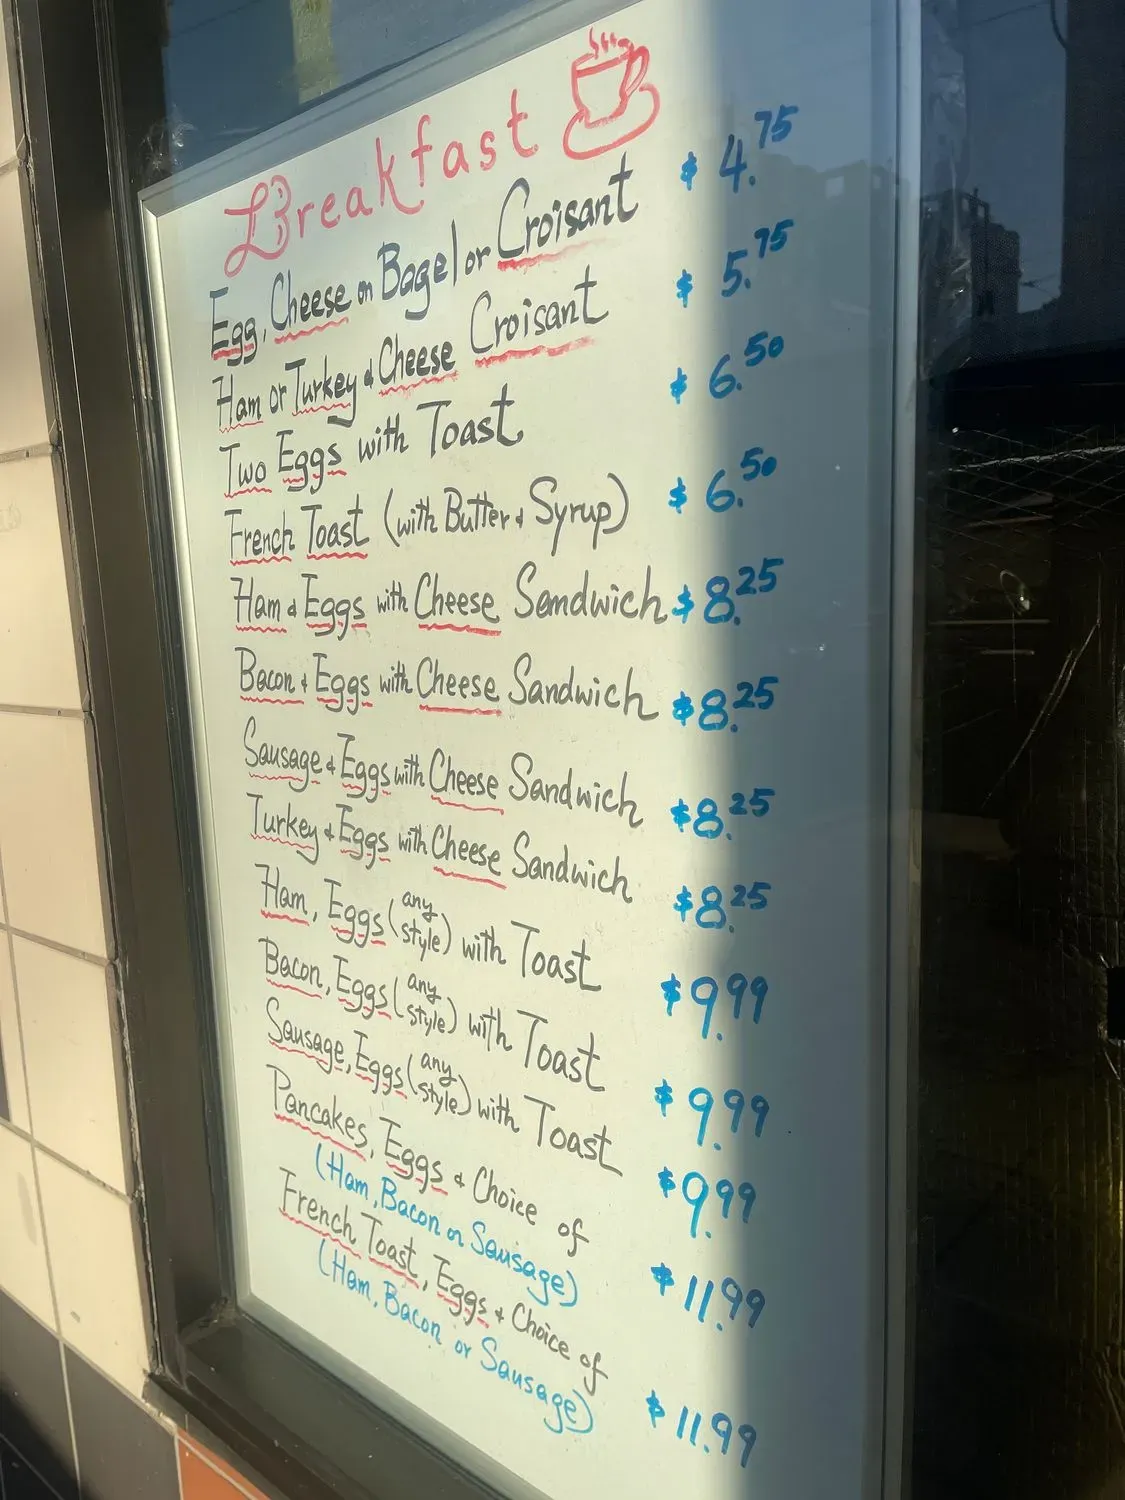 Breakfast
Egg, Cheese on Bagel or Croisant $4.75
Ham or Turkey & Cheese Croisant $5.75
Two Eggs with Toast $6.50
French Toast (with Butter & Syrup) $6.50
Ham & Eggs with Cheese Sandwich $8.25
Bacon & Eggs with Cheese Sandwich $8.25
Sausage & Eggs with Cheese Sandwich $8.25
Turkey & Eggs with Cheese Sandwich $8.25
Ham, Eggs (any style) with Toast $9.99
Bacon, Eggs (any style) with Toast $9.99
Sausage, Eggs (any style) with Toast $9.99
Pancakes, Eggs & Choice of
(Ham, Bacon or Sausage) $11.99
French Toast, Eggs & Choice of
(Ham, Bacon or Sausage) $11.99